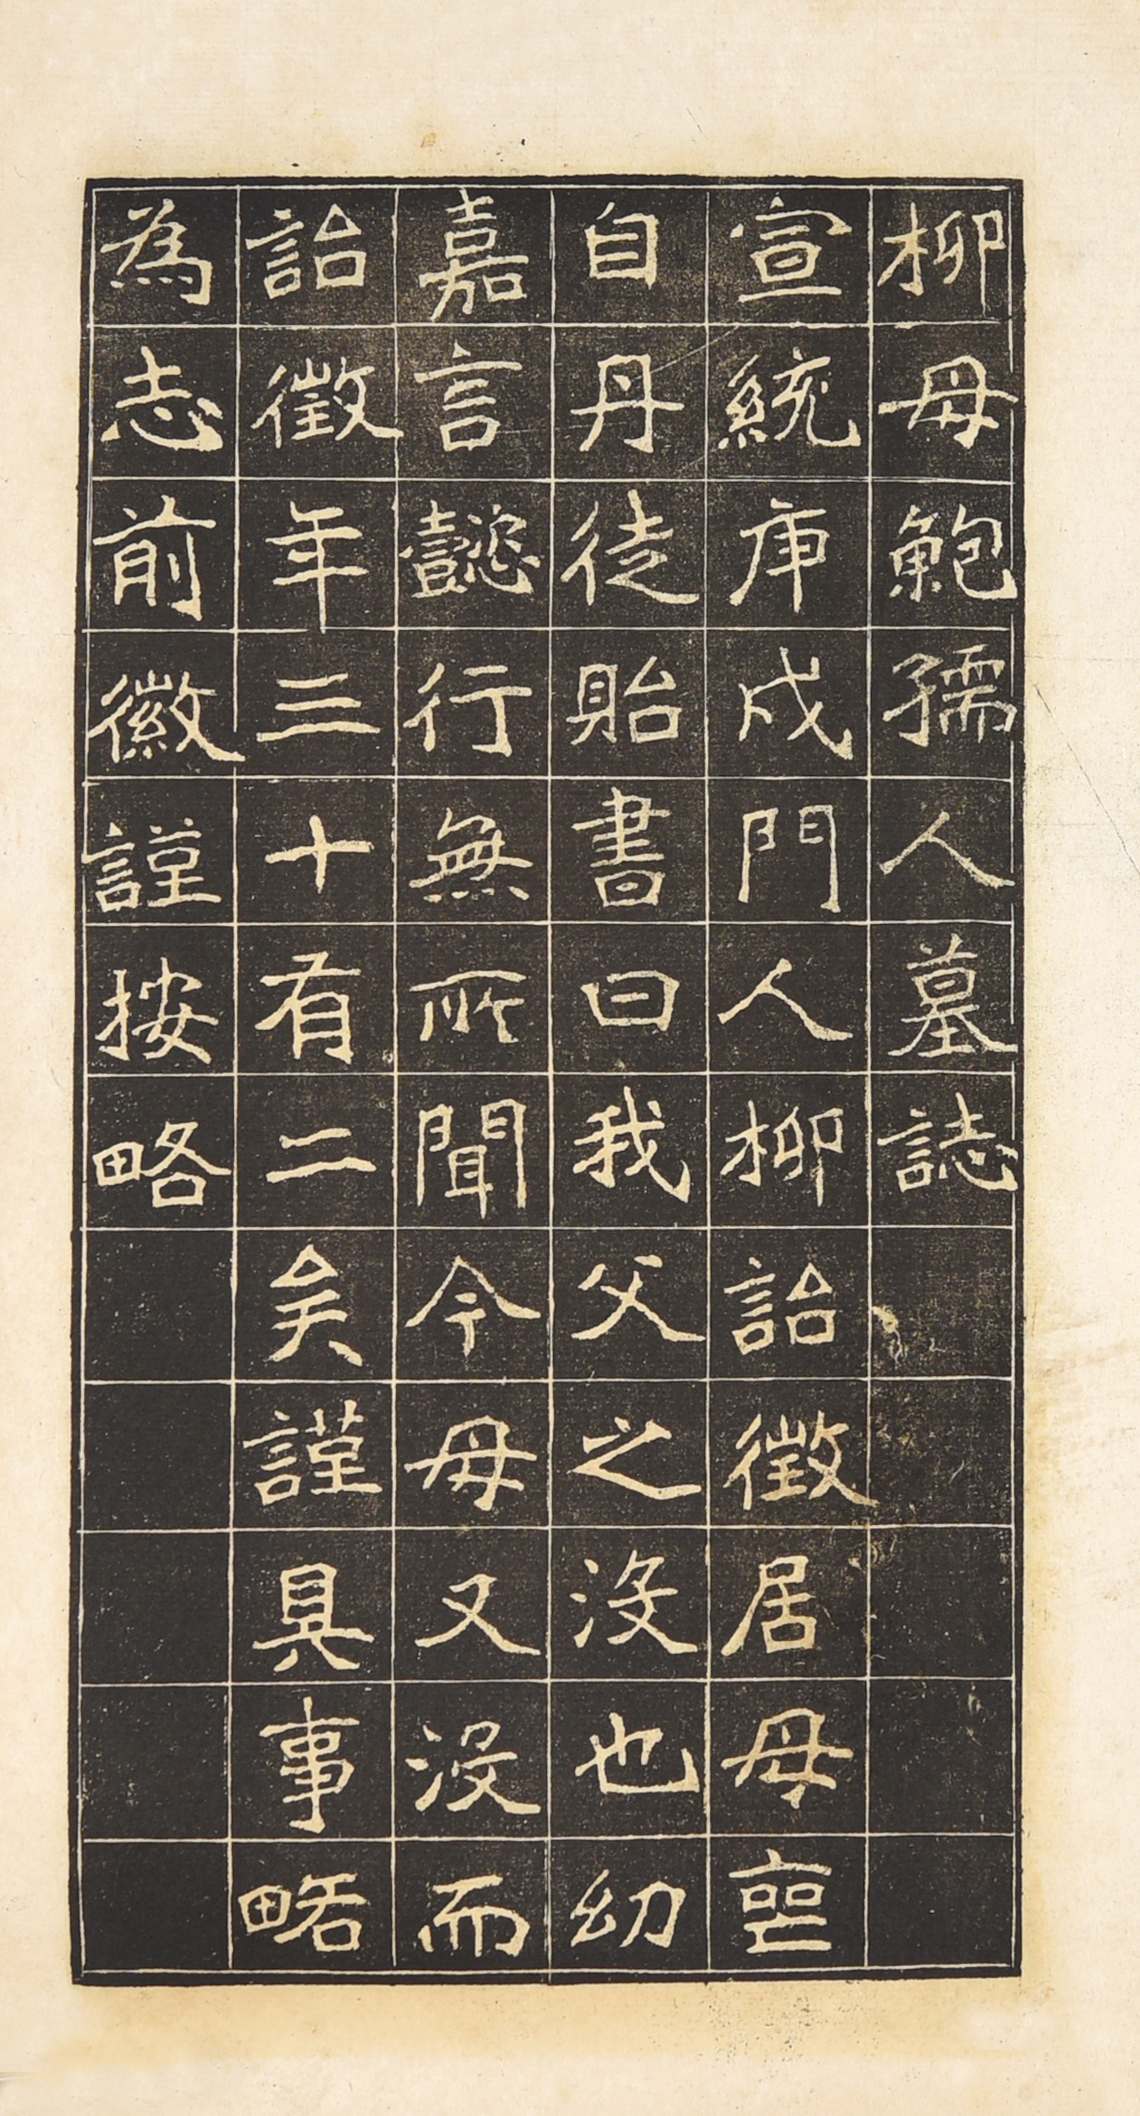 柳母鮑孺人墓誌
宣統庚戌門人柳詒徵居母喪
自丹徒貽書曰我父之沒也幼
嘉言懿行無所聞今母又沒而
詒徵年三十有二矣謹具事略
為志前徽謹按略